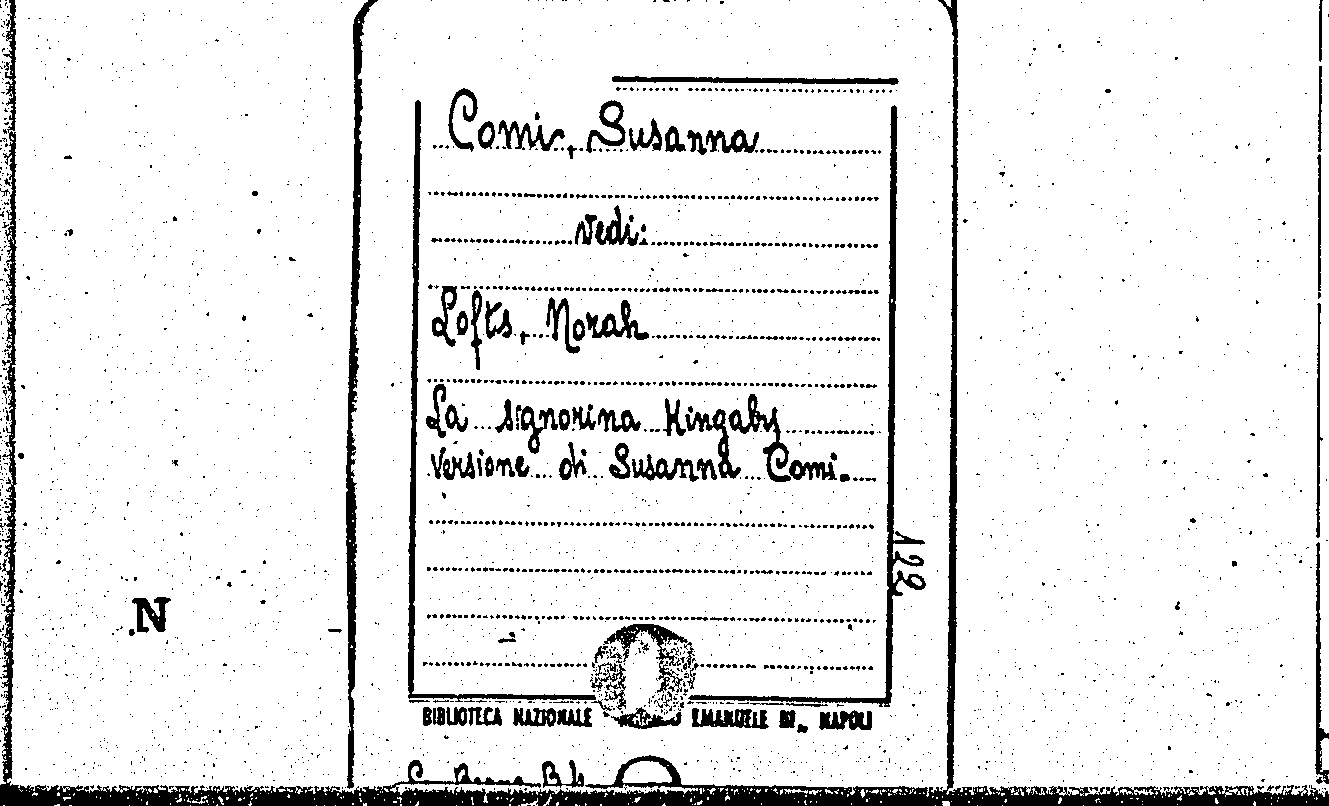 Comi, Susanna
vedi:
Lofts, Norah
La signorina Kingaby
Versione di Susanna Comi.
122
N
BIBLIOTECA NAZIONALE EMANUELE III„ NAPOLI